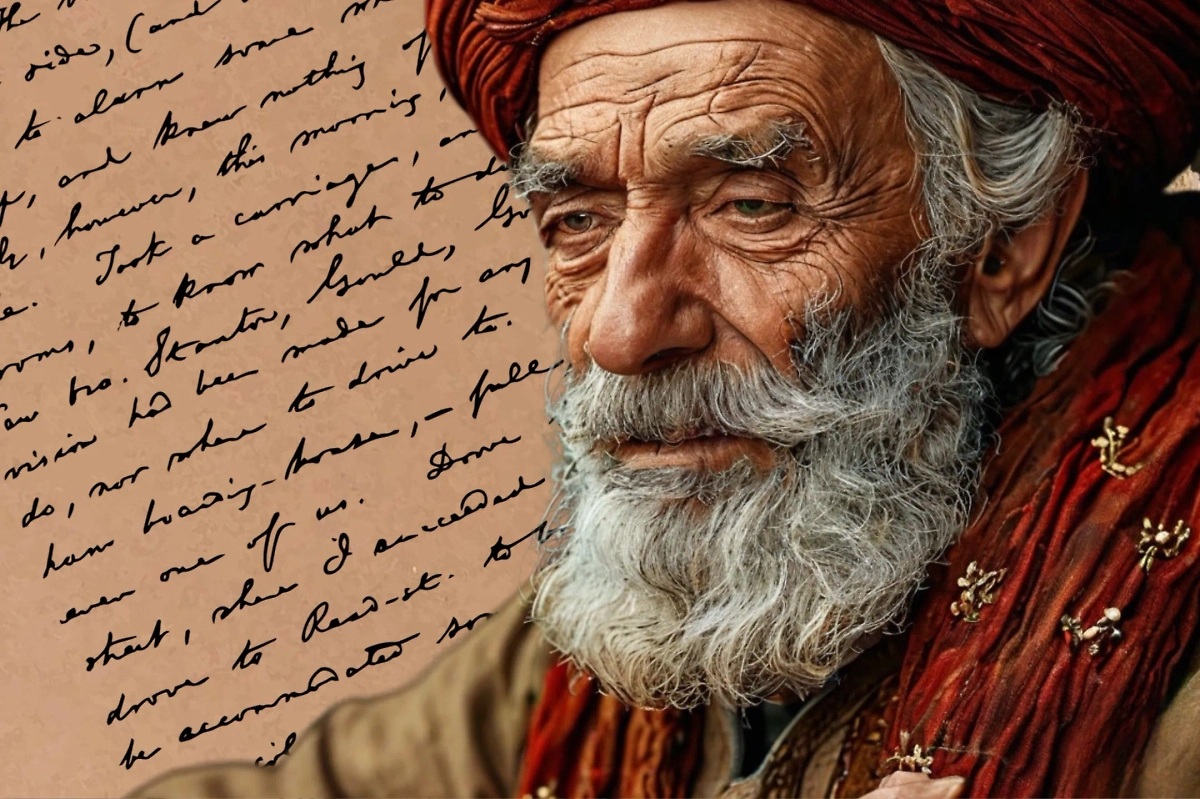 the
side, (and
to alarm some
and knew nothing
however, this morning,
Took a carriage, an
rooms, to know what to do
bro. Stanton, Gould, Go
vision had been made for any
do, nor where to drive to.
ham boarding-house,— full
even one of us. Drove
street, where I succeeded
drove to Read-st. to
be accommodated so